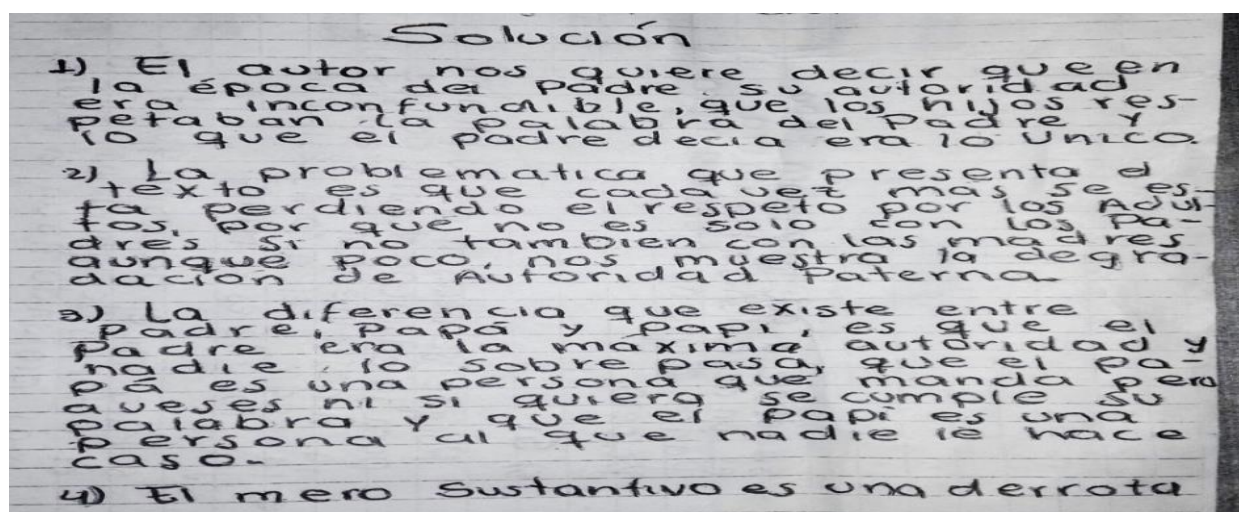 Solución
1) El autor nos quiere decir que en
la época del padre su autoridad
era inconfundible, que los hijos res-
petaban la palabra del Padre y
lo que el padre decia era lo unico.
2) La problematica que presenta el
texto es que cada vez mas se es-
ta perdiendo el respeto por los Adul-
tos, por que no es solo con los Pa-
dres si no tambien con las madres
aunque poco, nos muestra la degra-
dación de Autoridad Paterna
3) La diferencia que existe entre
Padre, Papá y papi, es que el
Padre era la maxima autoridad y
nadie lo sobre pasa, que el pa-
pá es una persona que manda pero
aveses ni si quiera se cumple su
palabra y que el papi es una
persona al que nadie le hace
caso.
4) El mero sustantivo es una derrota